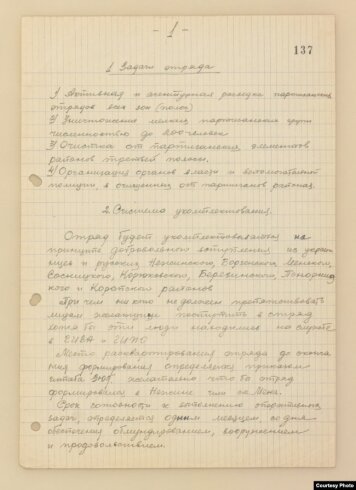 - 1 -
137
1 Задачи отряда
1) Активная и агентурная разведка партизанских
отрядов всех зон (полос)
2) Уничтожение мелких партизанских групп
численностью до 200 человек
3) Очистка от партизанских элементов
районов третьей полосы.
4) Организация органов власти и вспомогательной
полиции в очищенных от партизан районах.
2. Система укомплектования.
Отряд будет укомплектовываться на
принципе добровольного вступления из украин
цев и русских Нежинского, Борзнянского, Менского,
Сосницкого, Корюковского, Березинского, Понорниц
кого и Коропского районов
При чем никто не должен препятствовать
лицам желающим поступить в отряд
хотя бы эти люди находились на службе
в
Место расквартирования отряда до оконча
ния формирования определяется приказом
штаба желательно что бы отряд
формировался в Нежине или м. Мена.
Срок готовности к выполнению оперативных
задач, определяется одним месяцем со дня
обеспечения обмундированием, вооружением
и продовольствием.
Courtesy Photo